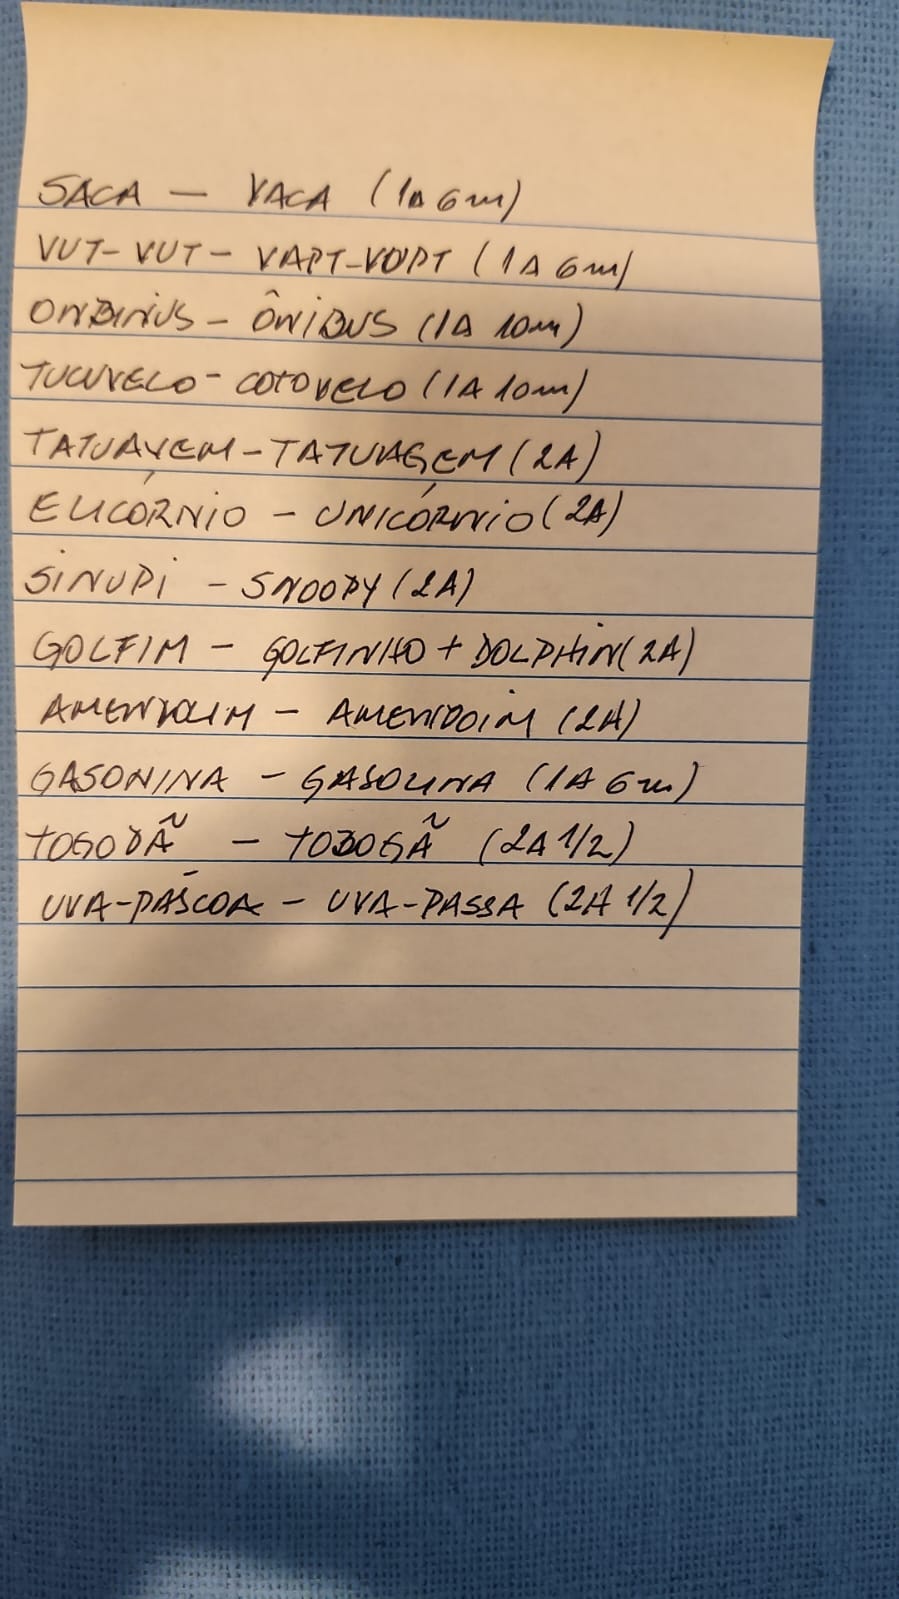 SACA — VACA (1A 6m)
VUT-VUT - VAPT-VUPT (1A 6m)
ONBINUS - ÔNIBUS (1A 10m)
TUCUVELO - COTOVELO (1A 10m)
TATUAVEM - TATUAGEM (2A)
ELICÓRNIO - UNICÓRNIO (2A)
SINUPI - SNOOPY (2A)
GOLFIM - GOLFINHO + DOLPHIN (2A)
- AMENDOIM (2A)
GASONINA - GASOLINA (1A 6m)
TOGOBÃ - TOBOGÃ (2A 1/2)
UVA-PÁSCOA - UVA-PASSA (2A 1/2)